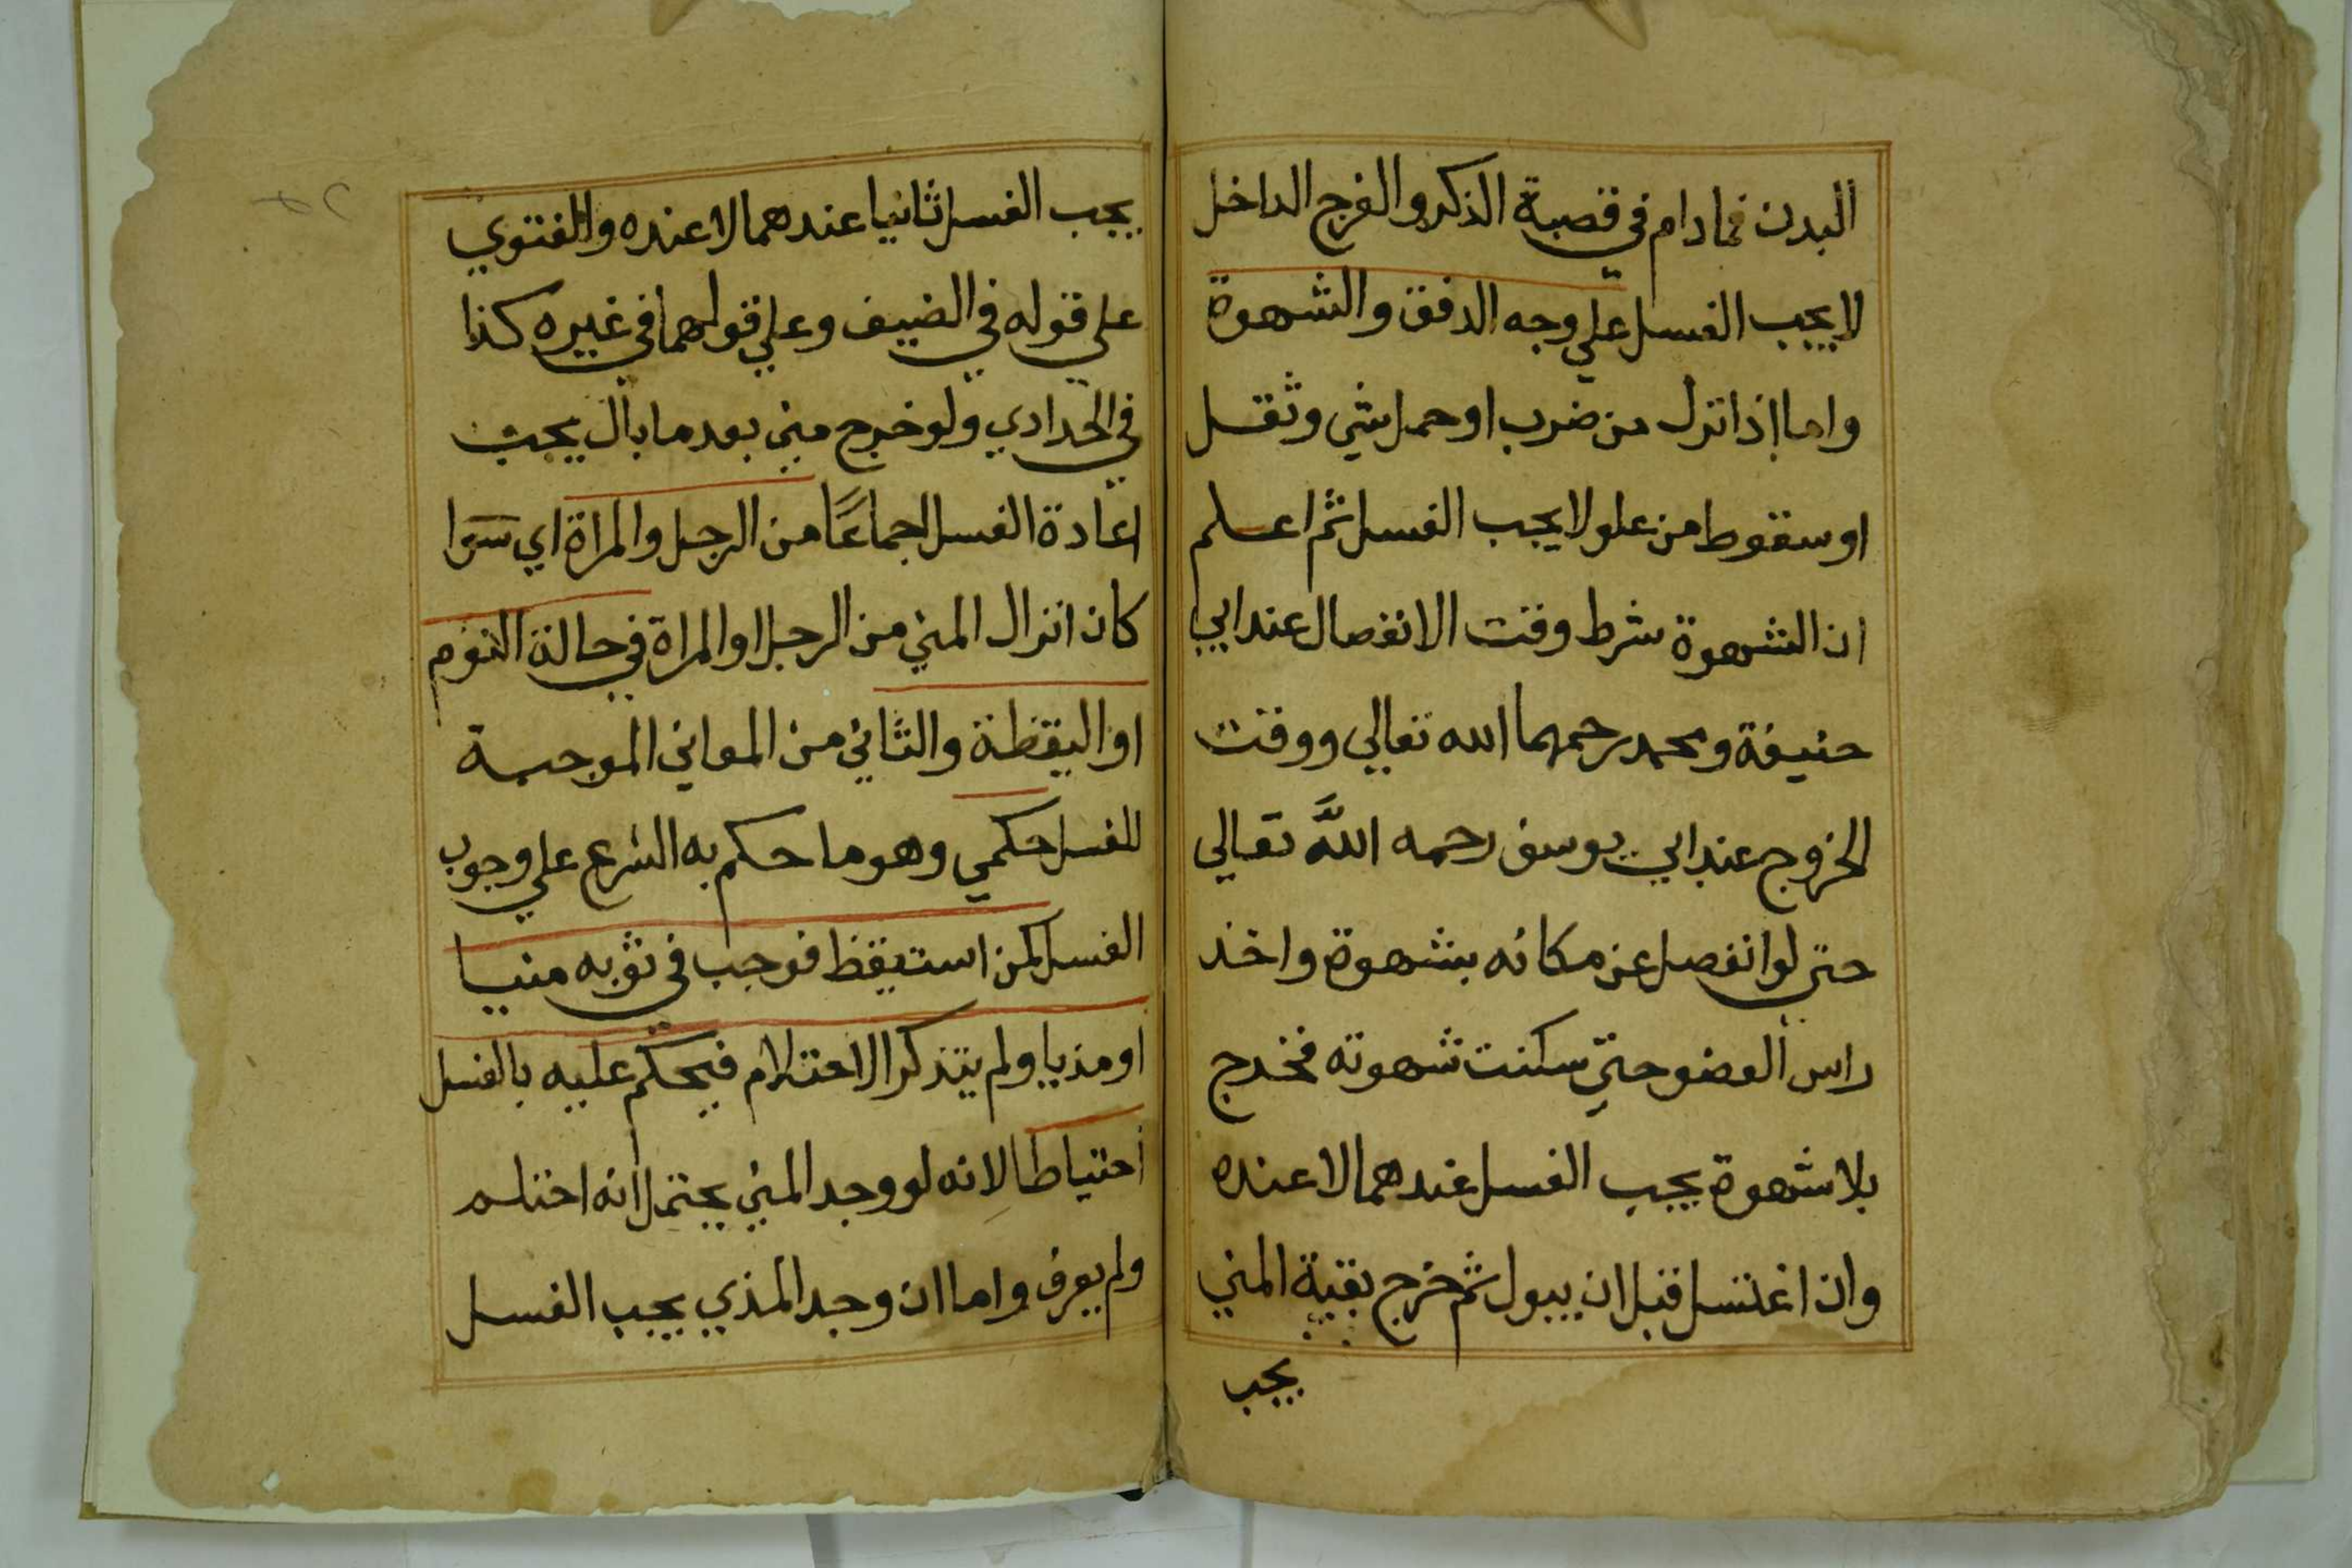 البدن فمادام في قصبة الذكر والفرج الداخل
لا يجب الغسل علي وجه الدفق والشهوة
واما اذا نزل من ضرب او حمل شي وثقل
او سقوط من علو لا يجب الغسل ثم اعلم
ان الشهوة شرط وقت الانفصال عند ابي
حنيفة ومحمد رحمهما الله تعالي ووقت
الخروج عند ابي يوسف رحمه اللَّه تعالي
حتي لو انفصل عن مكانه بشهوة واخذ
راس العضو حتي سكنت شهوته فخرج
بلا شهوة يجب الغسل عندهما لا عنده
وان اغتسل قبل ان يبول ثم خرج بقية المني
يجب
يجب الغسل ثانيا عندهما لا عنده والفتوي
علي قوله في الضيف وعلي قولهما في غيره كذا
في الحدادي ولو خرج مني بعد ما بال يجب
اعادة الغسل اجماعًا من الرجل والمراة اي سوا
كان انزال المني من الرجل او المراة في حالة النوم
او اليقظة والثاني من المعاني الموجبة
للغسل حكمي وهو ما حكم به الشرع علي وجوب
الغسل لمن استيقظ فوجب في ثوبه منيا
او مذيا ولم يتذكر الاحتلام فيحكم عليه بالغسل
احتياطا لانه لو وجد المني يحتمل انه احتلم
ولم يعرف واما ان وجد المذي يجب الغسل